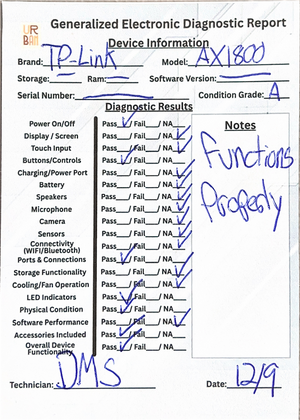 UR
BAN
Generalized Electronic Diagnostic Report
Device Information
Brand: TP-Link Model: AX1800
Storage: Ram: Software Version:
Serial Number: Condition Grade: A
Diagnostic Results
Power On/Off Pass ✓/ Fail / NA
Display / Screen Pass / Fail / NA ✓
Touch Input Pass / Fail / NA ✓
Buttons/Controls Pass ✓/ Fail / NA
Charging/Power Port Pass / Fail / NA ✓
Battery Pass / Fail / NA ✓
Speakers Pass / Fail / NA ✓
Microphone Pass / Fail / NA ✓
Camera Pass / Fail / NA ✓
Sensors Pass / Fail / NA ✓
Connectivity
(WIFI/Bluetooth) Pass / Fail / NA ✓
Ports & Connections Pass ✓/ Fail / NA
Storage Functionality Pass / Fail / NA ✓
Cooling/Fan Operation Pass / Fail / NA ✓
LED Indicators Pass ✓/ Fail / NA
Physical Condition Pass ✓/ Fail / NA
Software Performance Pass / Fail / NA ✓
Accessories Included Pass ✓/ Fail / NA
Overall Device
Functionality Pass ✓/ Fail / NA
Notes
Functions
Properly
Technician: DMS Date: 12/9